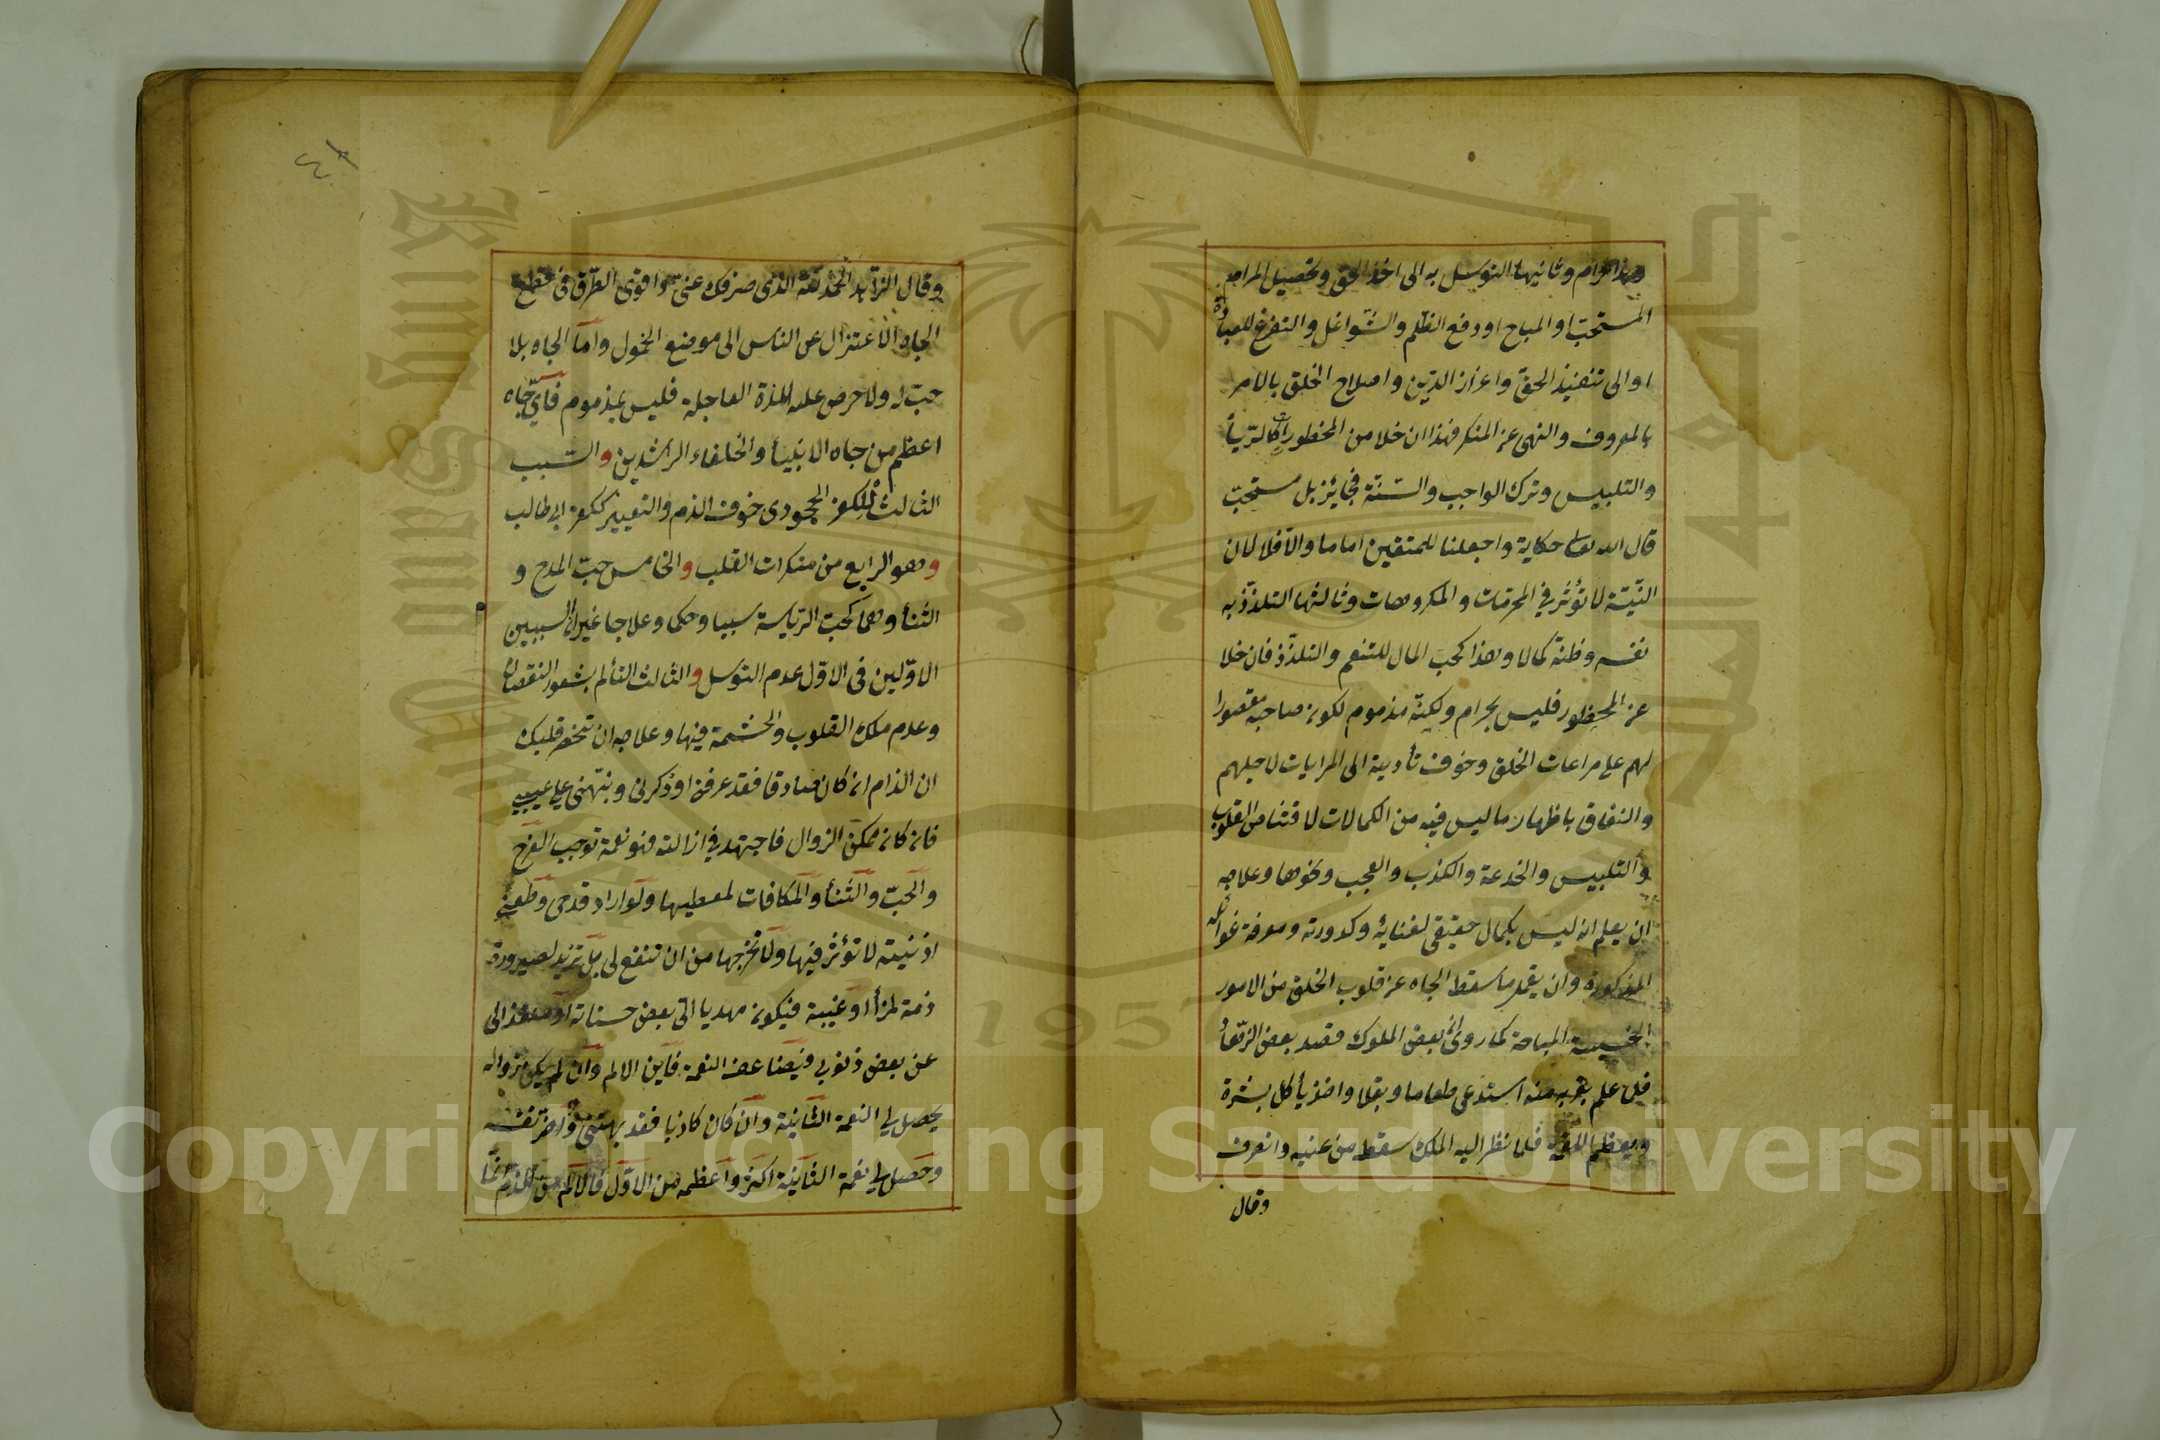 وهذا حرام وثانيها التوسل به الى اخذ الحق وتحصيل المرام
المستحبّ او المباح او دفع الظلم والشّواغل والتفرغ للعبادة
او الى تنفيذ الحقّ واعزاز الدّين واصلاح الخلق بالامر
بالمعروف والنهى عن المنكر فهذا ان خلا من المحظورات كالرّياء
والتلبيس وترك الواجب والسّنّة فجائز بل مستحبّ
قال الله تعالى حكاية واجعلنا للمتقين اماما والّا فلا لان
النّيّة لا تؤثّر في المحرّمات والمكروهات وثالثها التلذّذ به
نفسه وظنّه كمالا وهذا كحبّ المال للتنعم والتلذّذ فان خلا
عن المحظور فليس بحرام ولكنّه مذموم لكون صاحبه مقصورا
لهم على مراعات الخلق وخوف تأديته الى المرايات لاجلهم
والنفاق باظهار ما ليس فيه من الكمالات لاقتناص القلوب
والتلبيس والخدعة والكذب والعجب ونحوها وعلاجه
ان يعلم انه ليس بكمال حقيقى لفنائه وكدورته ومعرفة غوائله
المذكورة وان يعمل ما يسقط الجاه عن قلوب الخلق من الامور
الخسيسة المباحة كما روى ان بعض الملوك قصد بعض الزّهّاد
فلما علم بقربه منه استدعى طعاما وبقلا واخذ يأكل بشره
ويعظم اللقمة فلما نظر اليه الملك سقط من عينه وانصرف
وقال
وقال الزاهد الحمد لله الذى صرفك عنى واقوى الطرق فى قطع
الجاه الاعتزال عن الناس الى موضع الخمول وامّا الجاه بلا
حبّ له ولا حرص عليه للذة العاجلة فليس بمذموم فاىّ جاه
اعظم من جاه الانبياء والخلفاء الراشدين والسبب
الثالث للكفر الجحودى خوف الذم والتعيير ككفر ابى طالب
وهو الرابع من منكرات القلب والخامس حبّ المدح و
الثناء وهما كحبّ الرّياسة سببا وحكما وعلاجا غير ان السببين
الاوّلين فى الاوّل عدم التوسل والثالث التألم بشعور النقصان
وعدم ملك القلوب والحشمة فيها وعلاجه ان تحضر قلبك
ان الذام ان كان صادقا فقد عرفنى او ذكرنى ونبّهنى على عيبى
فان كان ممكن الزوال فاجتهد في ازالته فهو نعمة توجب الفرح
والحبّ والثناء والمكافات لمعطيها ولو اراد قدحى وطعنى
اذ نيته لا تؤثر فيها ولا تخرجها من ان تنفع لى بل تزيد لصيرورة
ذمة لمزا او غيبة فيكون مهديا الى بعض حسناته او منقذا لى
عن بعض ذنوبي فيضاعف النعمة فاين الالم وان لم يكن زواله
يحصل لى النعمة الثانية وان كان كاذبا فقد بهتنى واضر نفسه
وحصل لى نعمة الثانية اكثر واعظم من الاوّل فالالم من الذم انما